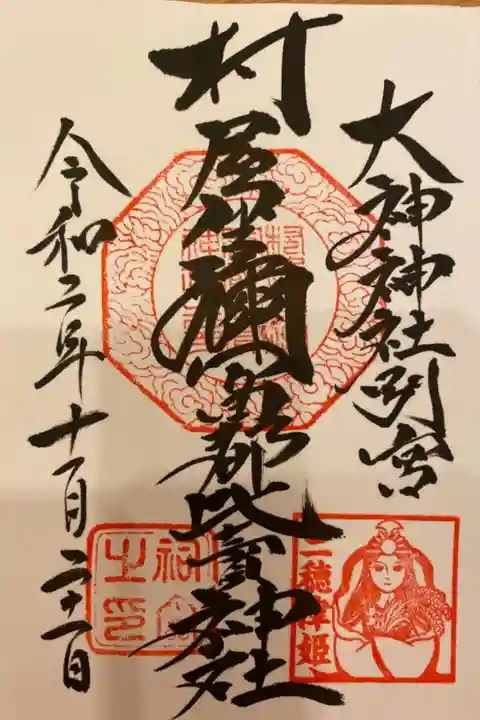 大神神社別宮
村屋坐彌冨都比賣神社
令和二年十一月二十二日
三穂津姫
祠官之印